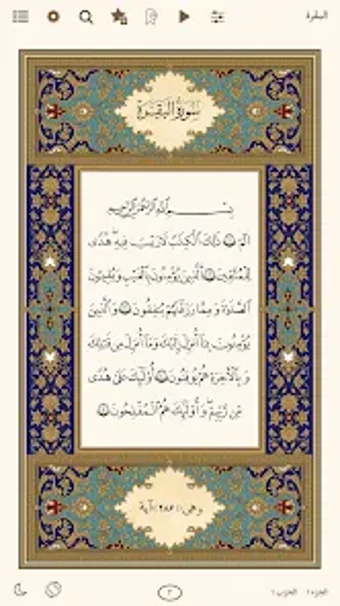 البقرة
سورة البقرة
بسم الله الرحمن الرحيم
الم ١ ذلك الكتب لا ريب فيه هدى
للمتقين ٢ الذين يؤمنون بالغيب ويقيمون
الصلوة ومما رزقنهم ينفقون ٣ والذين
يؤمنون بما أنزل إليك وما أنزل من قبلك
وبالآخرة هم يوقنون ٤ أولئك على هدى
من ربهم وأولئك هم المفلحون ٥
وهي ٢٨٦ آية
الجزء ١ الحزب ١
٢